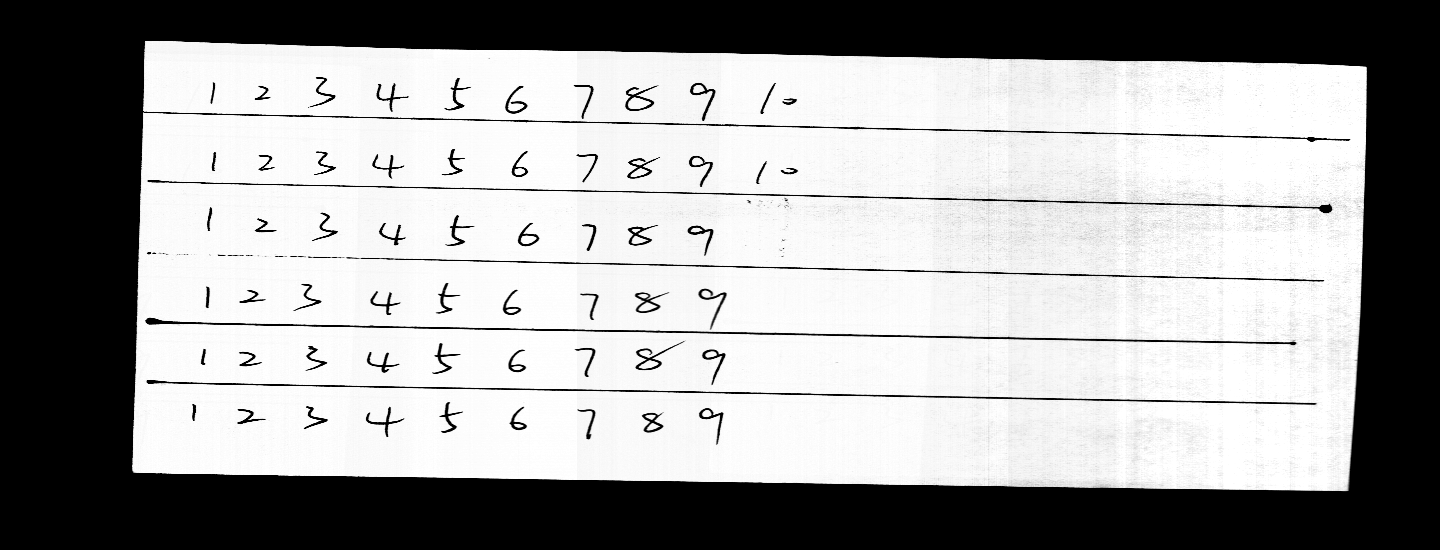 1 2 3 4 5 6 7 8 9 10
1 2 3 4 5 6 7 8 9 10
1 2 3 4 5 6 7 8 9
1 2 3 4 5 6 7 8 9
1 2 3 4 5 6 7 8 9
1 2 3 4 5 6 7 8 9